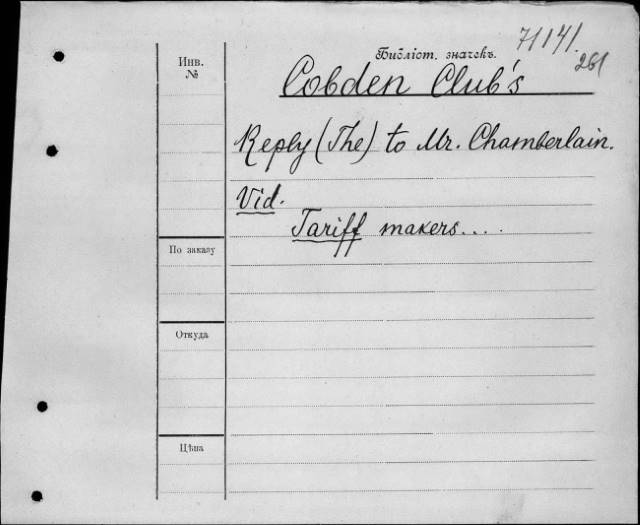 71141.
Библіот. значекъ.
261
Инв.
№
Cobden Club's
Reply (The) to Mr. Chamberlain.
Vid.
Tariff makers....
По заказу
Откуда
Цѣна